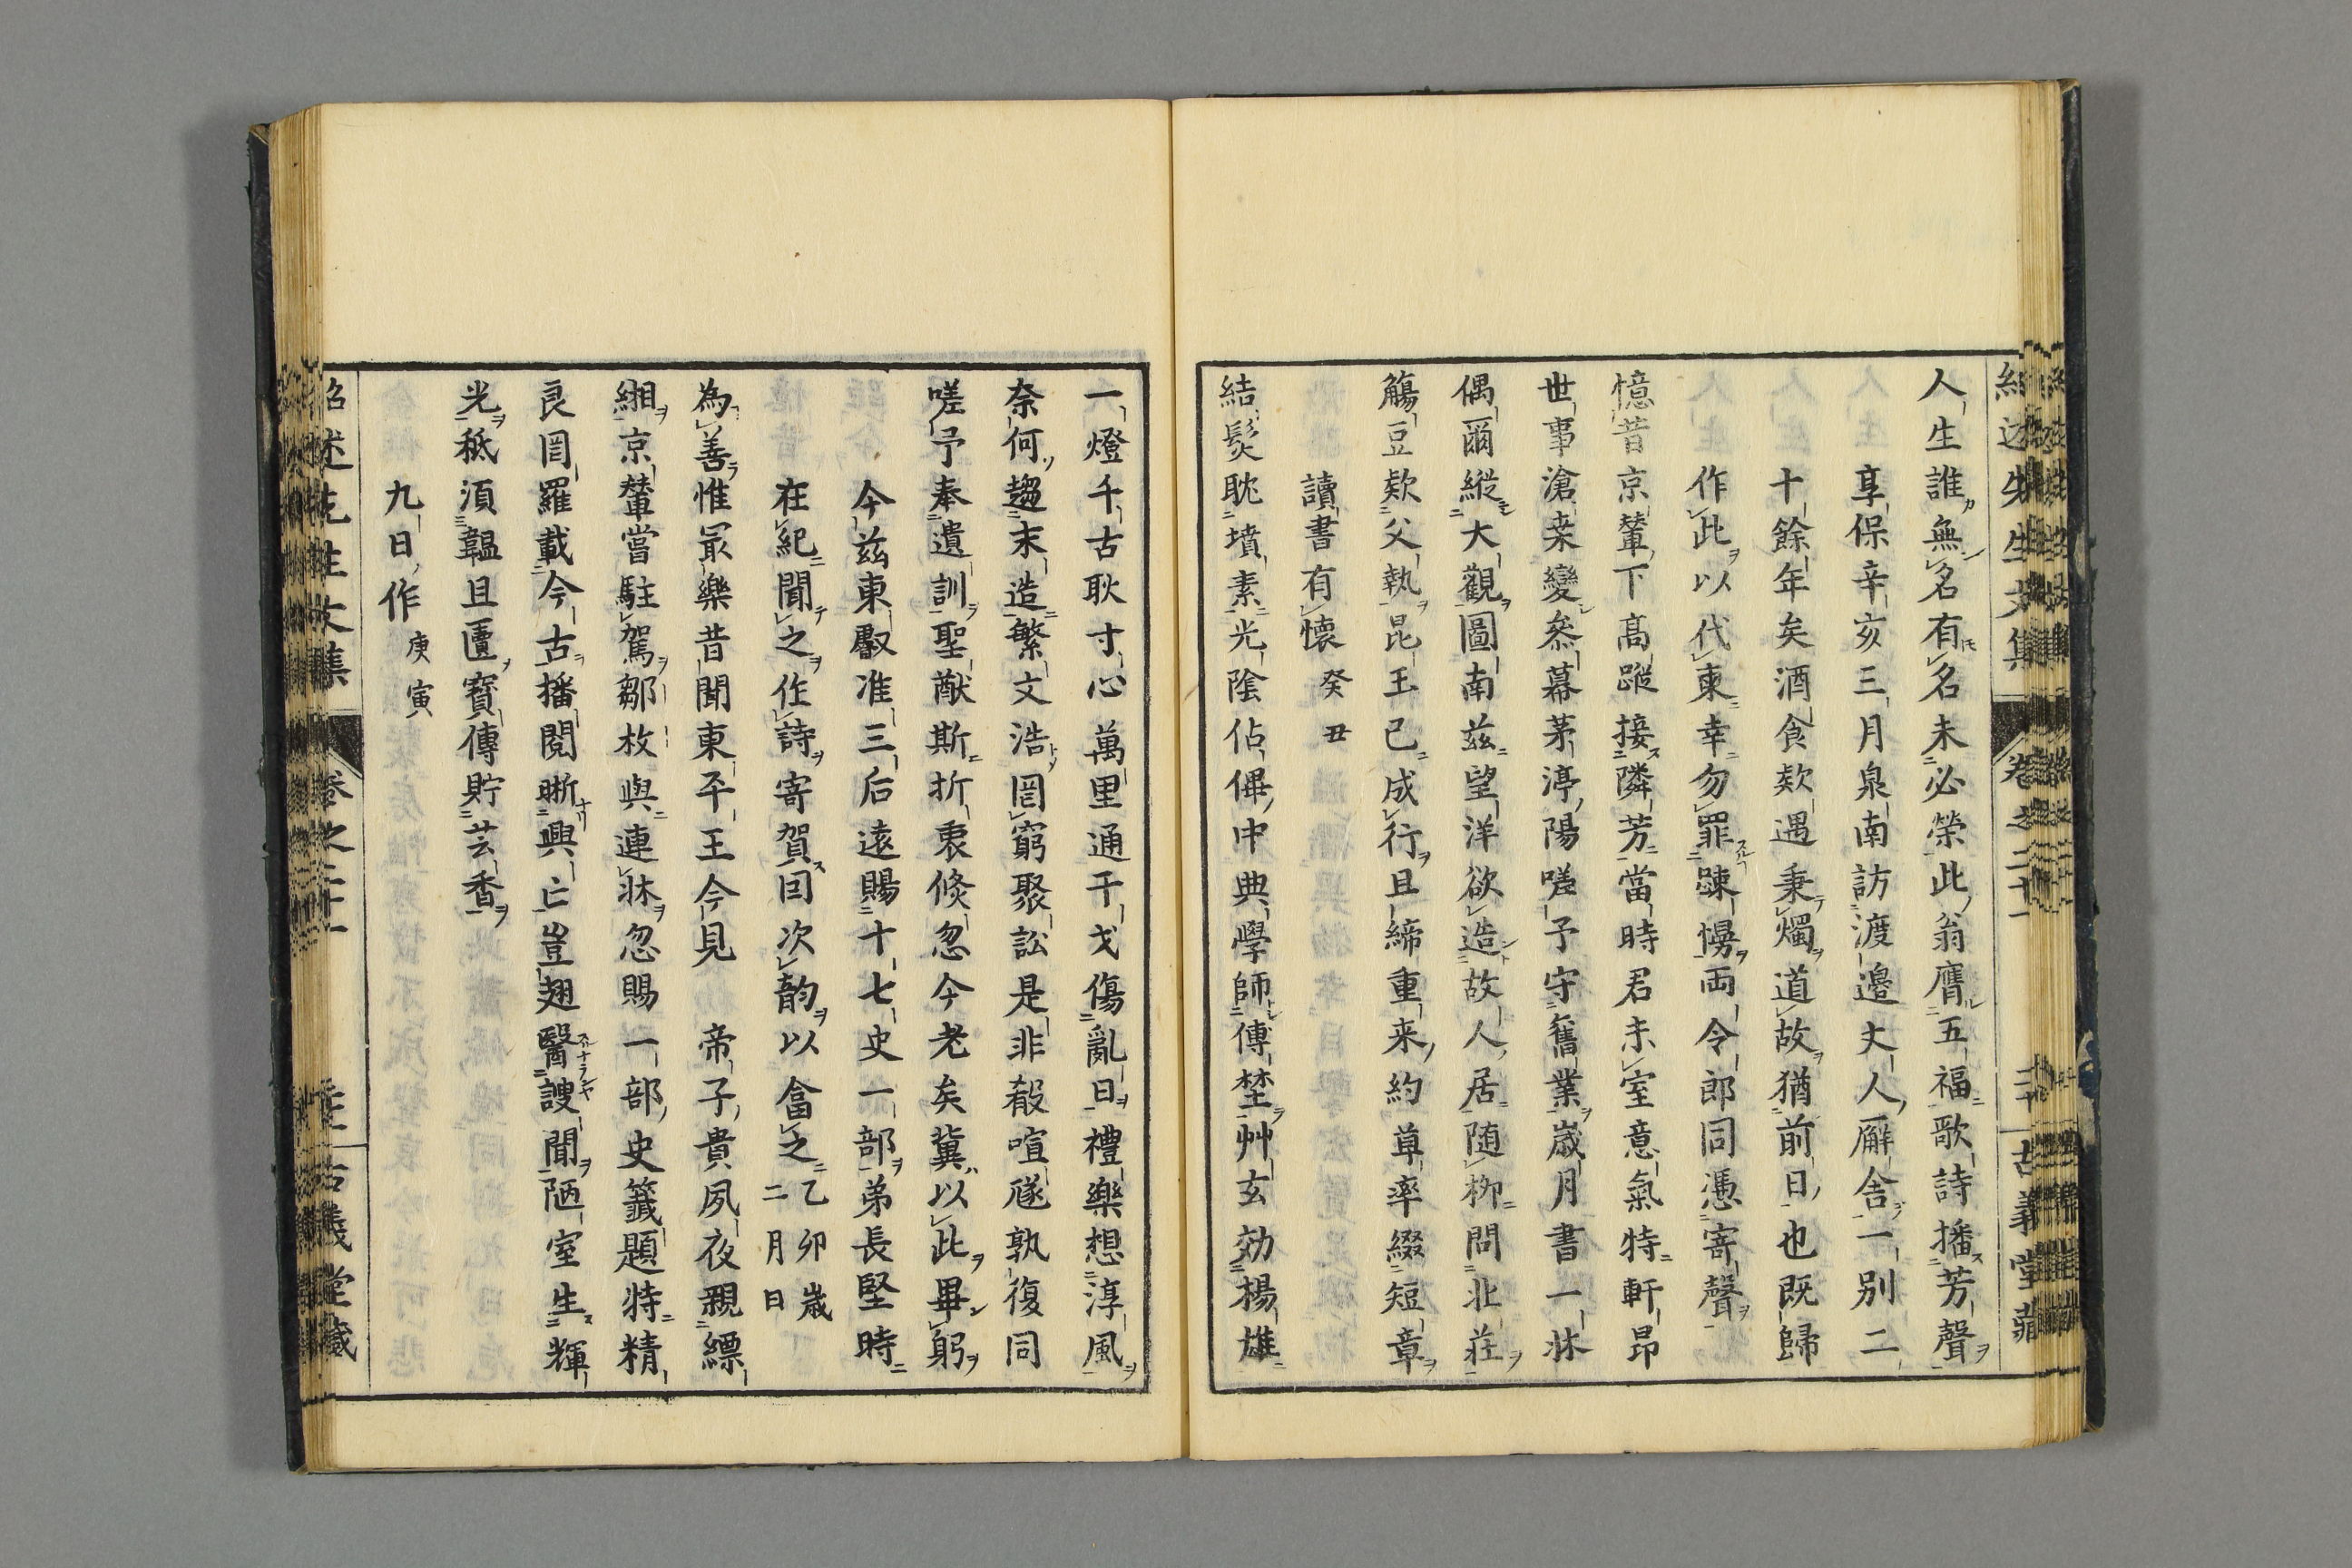 人生誰無名有名未必榮此翁膺五福歌詩播芳聲
享保辛亥三月泉南訪渡邉丈人廨舎一別二
十餘年矣酒食欵遇秉燭道故猶前日也既歸
作此以代柬幸勿罪踈慢両令郎同憑寄聲
憶昔京輦下髙蹤接隣芳當時君未室意氣特軒昂
世事滄桒變叅幕茅渟陽嗟予守舊業歳月書一牀
偶爾縦大觀圖南茲望洋欲造故人居随柳問北莊
觴豆欵父執昆玉已成行且締重来約草率綴短章
讀書有懐 癸丑
結髪耽墳素光陰佔僤中典學師傳埜艸玄効楊雄
一燈千古耿寸心萬里通干戈傷亂日禮樂想淳風
奈何趨末造繁文浩罔窮聚訟是非殽喧豗孰復同
嗟予奉遺訓聖猷斯折衷倏忽今老矣冀以此畢躬
今茲東叡准三后逺賜十七史一部弟長堅時
在紀聞之作詩寄賀囙次韵以畣之 乙卯歳二月日
為善惟冣樂昔聞東平王今見 帝子貴夙夜親縹
緗京輦嘗駐駕鄒枚與連牀忽賜一部史籤題特精
良囙羅載今古播閲晣興亡豈翅醫謏聞陋室生輝
光秪湏韞且匵寳傳貯芸香
九日作 庚寅
紹述先生文集 卷之二十一 古義堂藏